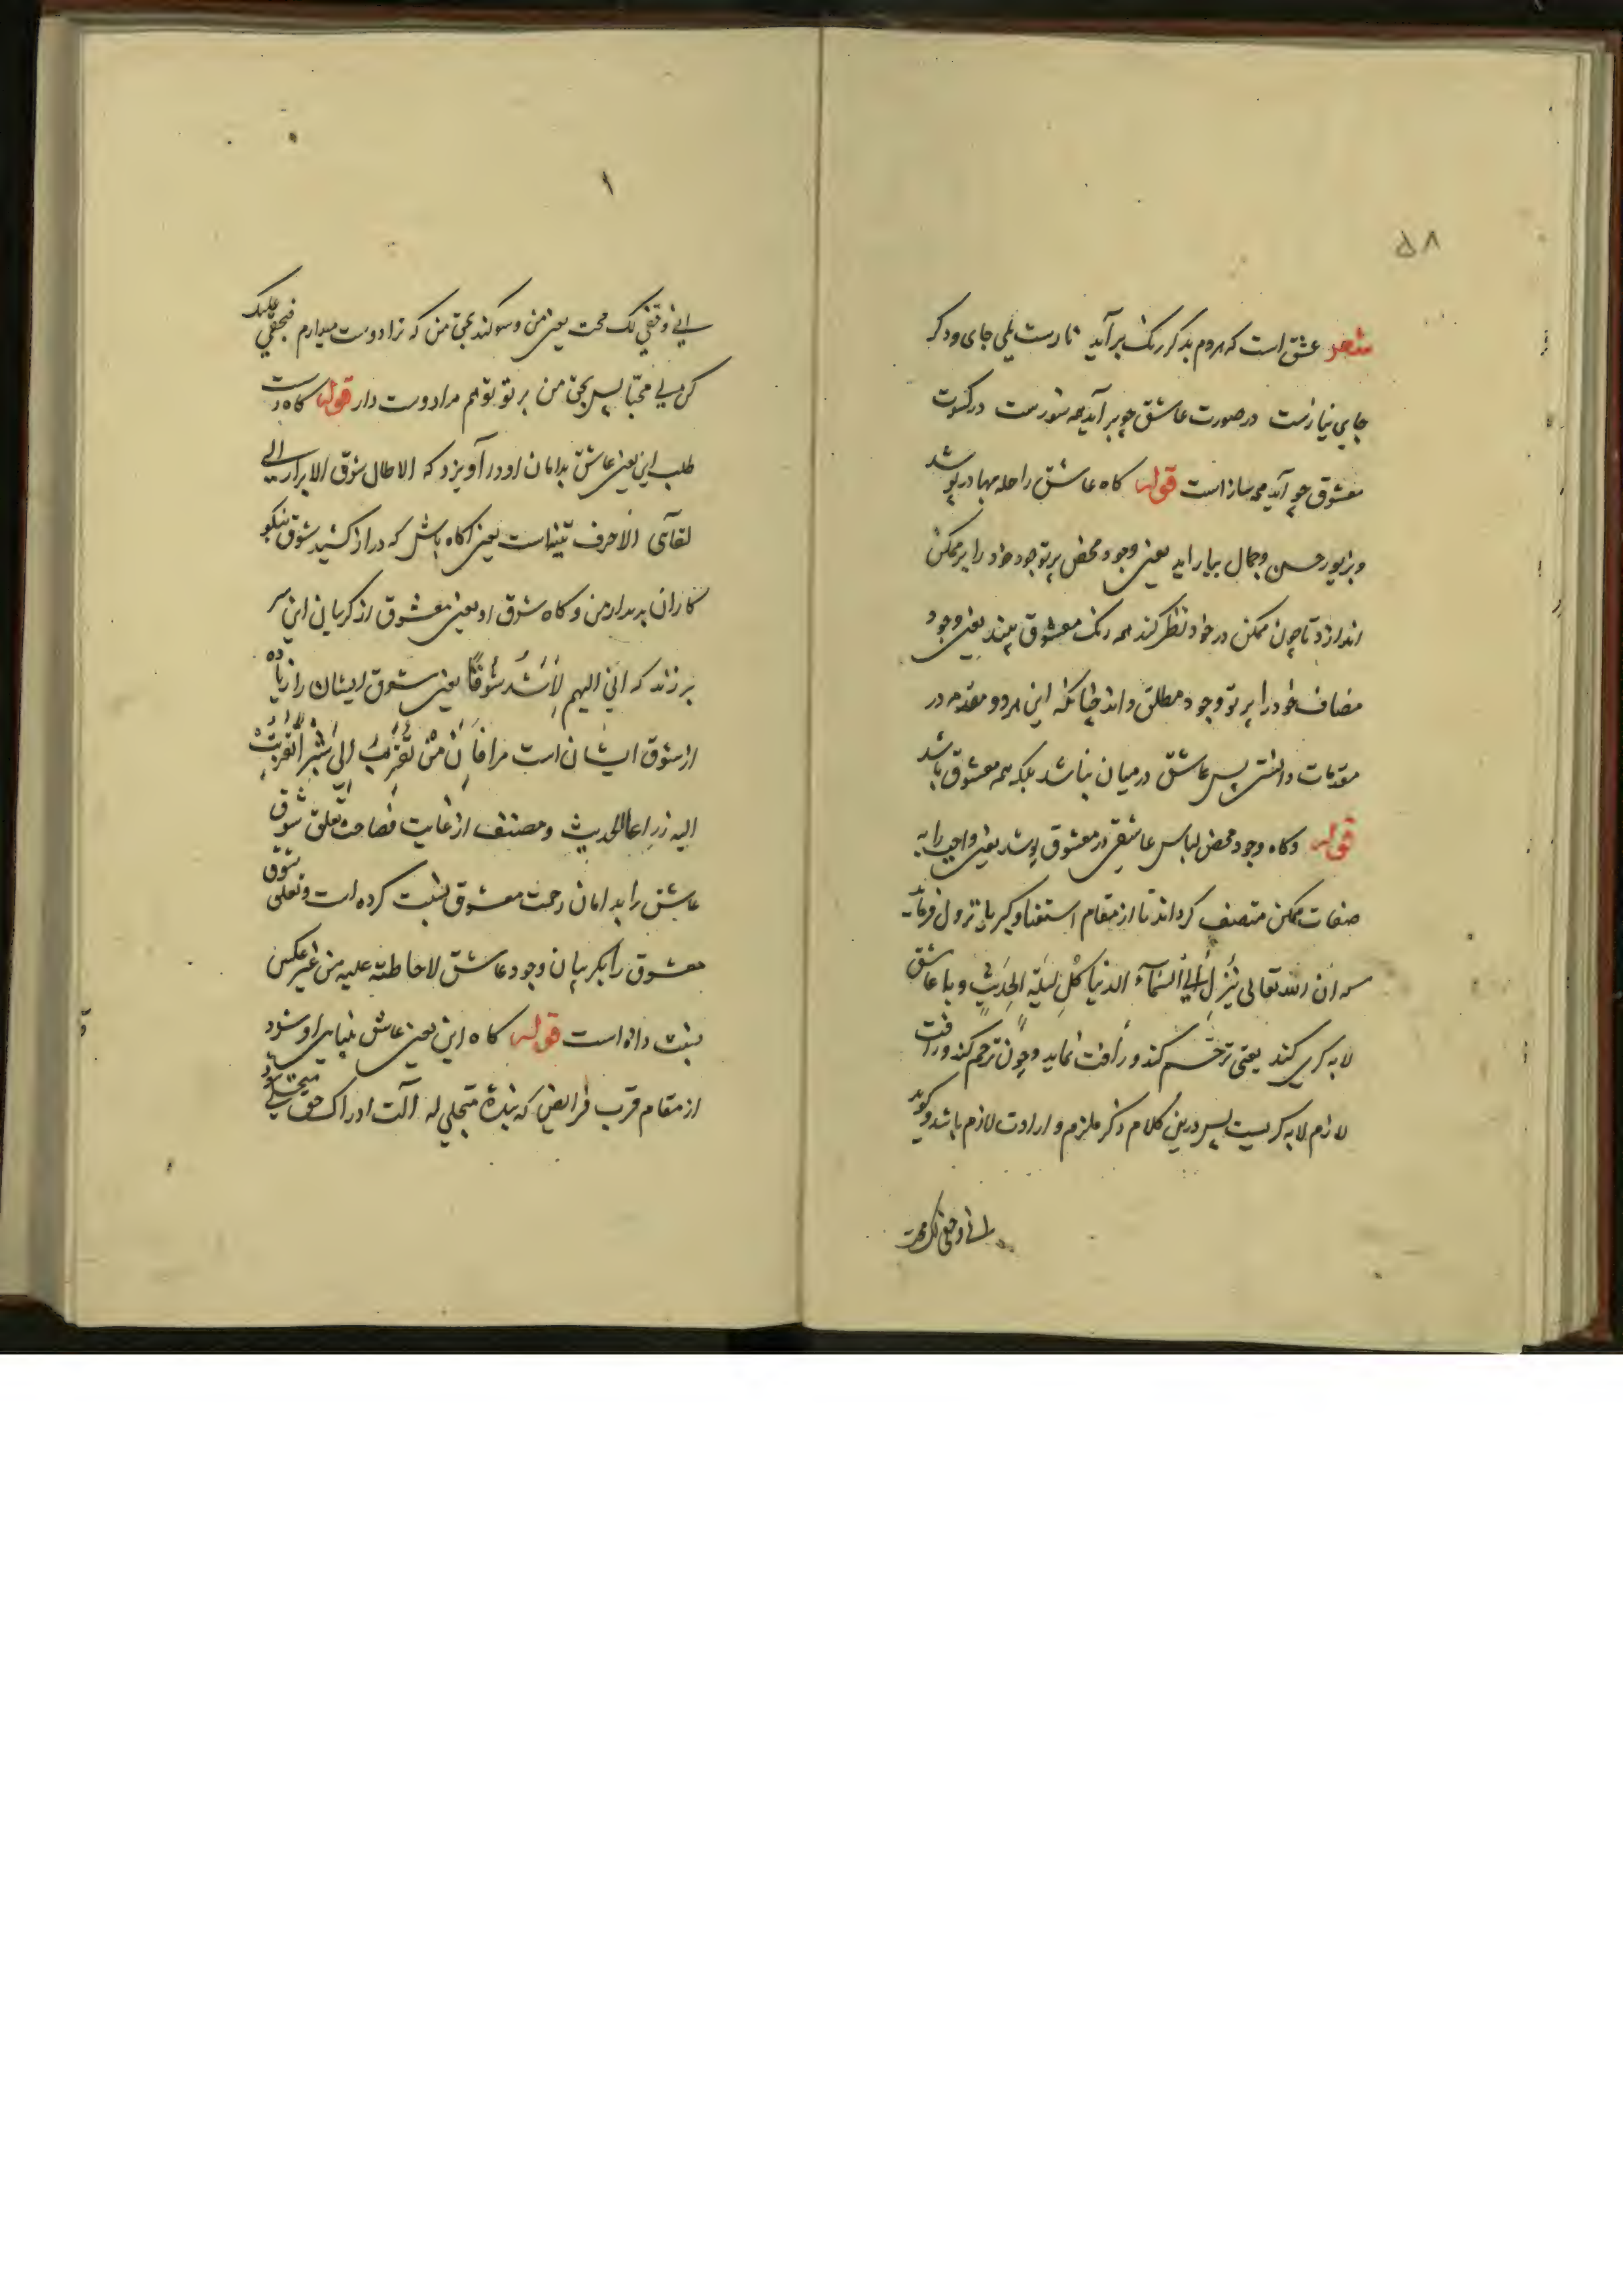 ۵۸
شعر عشق است که هر دم بدکر رنک برآید نازست یکی جای و دکر
جای نیازست در صورت عاشق چو برآید همه سوزست در کسوت
معشوق چو آید همه سازاست قوله کاه عاشق را حله بها در پوشد
و بزیور حسن و جمال بیاراید یعنی وجود محض پرتو جود خود را بر ممکن
اندازد تا چون ممکن در خود نظر کند همه رنک معشوق بیند یعنی وجود
مضاف خود را پرتو وجود مطلق داند چنانکه این هر دو مقدمه در
مقدمات دانستی پس عاشق در میان نباشد بلکه همه معشوق باشد
قوله و کاه وجود محض لباس عاشقی در معشوق پوشد یعنی واجب را به
صفات ممکن متصف کرداند تا از مقام استغنا و کبریا نزول فرماید
که ان الله تعالی ینزل الی السماء الدنیا کل لیلة الحدیث و با عاشق
لابه کری کند یعنی ترحم کند و رأفت نماید و چون ترحم کند و رافت
لازم لابه کریست پس درین کلام ذکر ملزم و ارادت لازم باشد و کوید
انی و حقی لک محب
۱
انی و حقی لک محب یعنی من و سوکند بحق من که ترا دوست میدارم فبحقی علیک
کن لی محبا پس بحق من بر تو تو هم مرا دوست دار قوله کاه دست
طلب این یعنی عاشق بدامان او درآویزد که الا طال شوق الابرار الی
لقآئی الا حرف تنبیه است یعنی آکاه باش که دراز کشید شوق نیکو
کاران بدیدار من و کاه شوق او یعنی معشوق از کریبان این سر
برزند که انی الیهم لأشد شوقا یعنی شوق ایشان را زیاده
از شوق ایشان است مرا فان من تقرب الی شبرا تقربت
الیه ذراعا الحدیث و مصنف از غایت فصاحت تعلق شوق
عاشق را بدامان رحمت معشوق نسبت کرده است و تعلق شوق
معشوق را بکریبان وجود عاشق لاحاطته علیه من غیر عکس
نسبت داده است قوله کاه این یعنی عاشق بینایی او شود
از مقام قرب فرایض که بنده متجلی له آلت ادراک حق متجلی شود